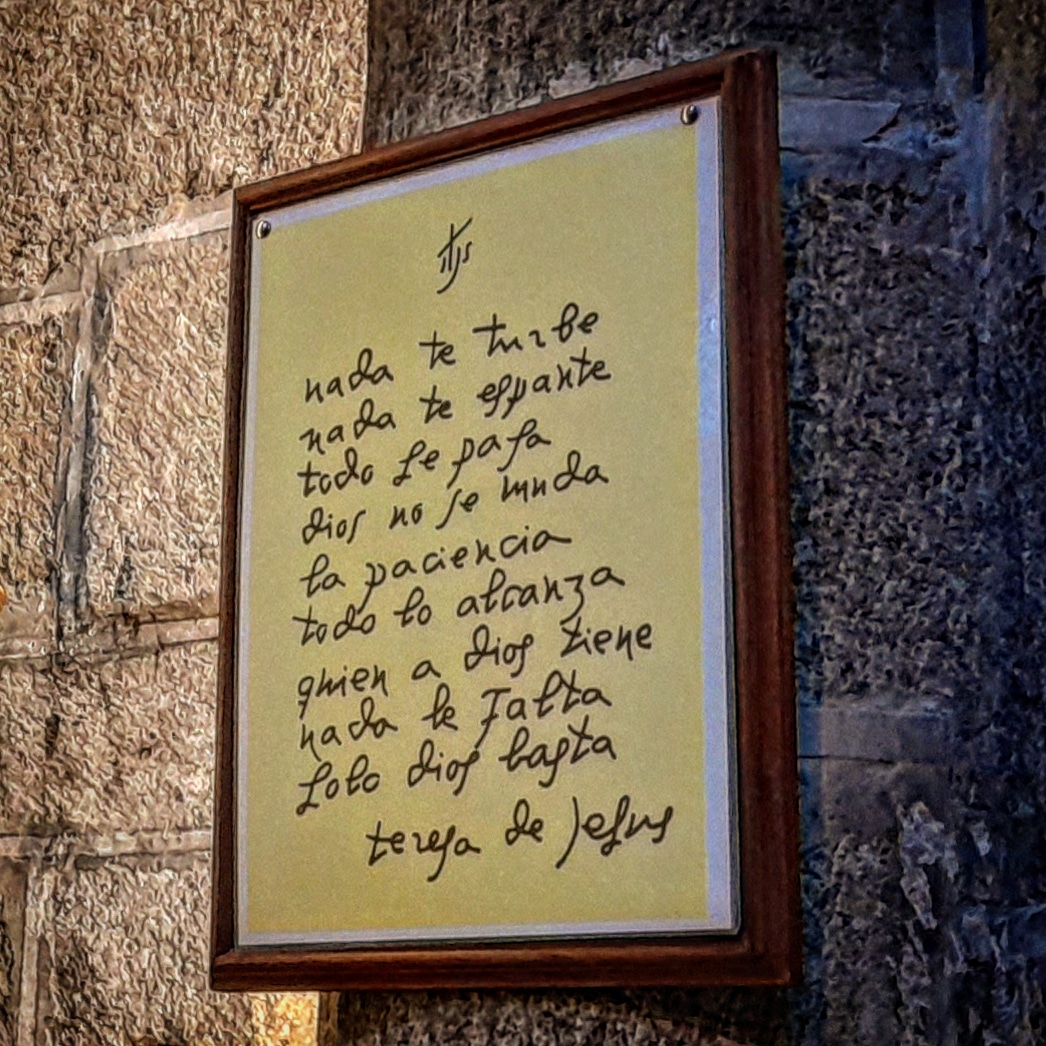 JHS
nada te turbe
nada te espante
todo se pasa
dios no se muda
la paciencia
todo lo alcanza
quien a dios tiene
nada le falta
solo dios basta
teresa de Jesus